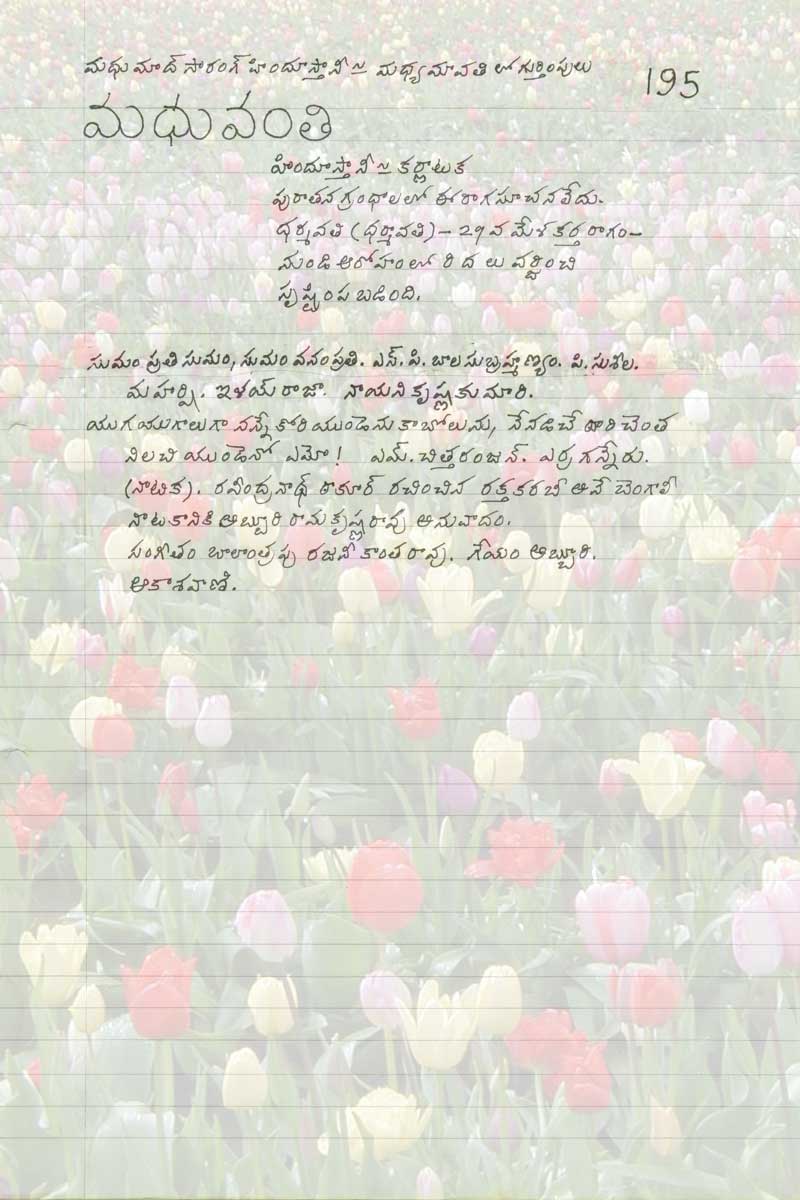 మధుమాద్ సారంగ్ హిందూస్తానీ ~ మధ్యమావతి లో గుర్తింపులు
195
మధువంతి
హిందూస్తానీ ~ కర్ణాటక
పురాతన గ్రంథాలలో ఈ రాగసూచనలేదు.
ధర్మవతి (ధర్మావతి) - 59వ మేళకర్త రాగం-
నుండి ఆరోహంలో రి ద లు వర్జించి
సృష్టింప బడింది.
సుమం ప్రతి సుమం, సుమం వనంప్రతి. ఎస్.పి. బాలసుబ్రహ్మణ్యం. పి. సుశీల.
మహర్షి. ఇళయ్‌రాజా. నాయని కృష్ణకుమారి.
యుగయుగాలుగా నన్నే కోరి యుండెను కాబోలును, నేనడిచే దారి చెంత
నిలచి యుండెనో ఏమో! ఎమ్. చిత్తరంజన్. ఎర్ర గన్నేరు.
(నాటిక). రవీంద్రనాథ్ ఠాకూర్ రచించిన రక్తకరబీ అనే బెంగాలీ
నాటకానికి అబ్బూరి రామకృష్ణరావు అనువాదం.
సంగీతం బాలాంత్రపు రజనీకాంతరావు. గేయం అబ్బూరి.
ఆకాశవాణి.